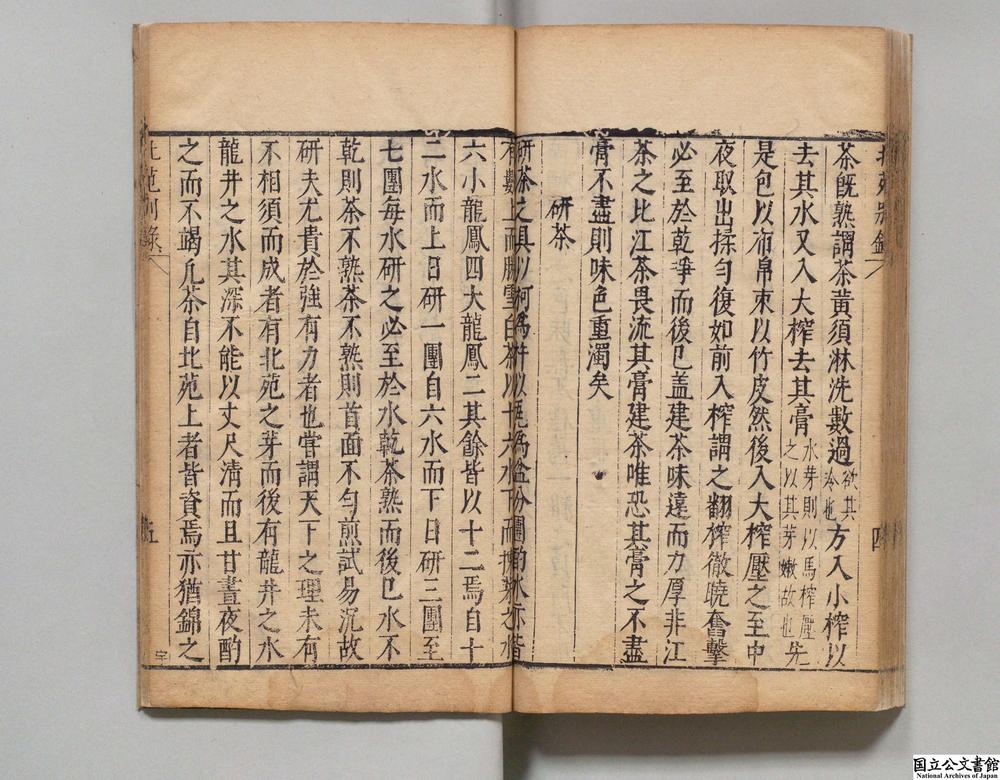 北苑別錄 四
茶旣熟謂茶黃須淋洗數過欲其冷也方入小榨以
去其水又入大榨去其膏水芽則以馬榨壓之以其芽嫩故也先
是包以布帛束以竹皮然後入大榨壓之至中
夜取出揉勻復如前入榨謂之翻榨徹曉奮擊
必至於乾爭而後已盖建茶味遠而力厚非江
茶之比江茶畏流其膏建茶唯恐其膏之不盡
膏不盡則味色重濁矣
研茶
研茶之具以柯爲杵以瓦爲盆分團酌水亦皆
有數上而勝雪白茶以十六水下而揀芽之水
六小龍鳳四大龍鳳二其餘皆以十二焉自十
二水而上日研一團自六水而下日研三團至
七團每水研之必至於水乾茶熟而後已水不
乾則茶不熟茶不熟則首面不勻煎試易沉故
研夫尤貴於強有力者也嘗謂天下之理未有
不相須而成者有北苑之芽而後有龍井之水
龍井之水其深不能以丈尺淸而且甘晝夜酌
之而不竭凡茶自北苑上者皆資焉亦猶錦之
北苑別錄 五
国立公文書館
National Archives of Japan